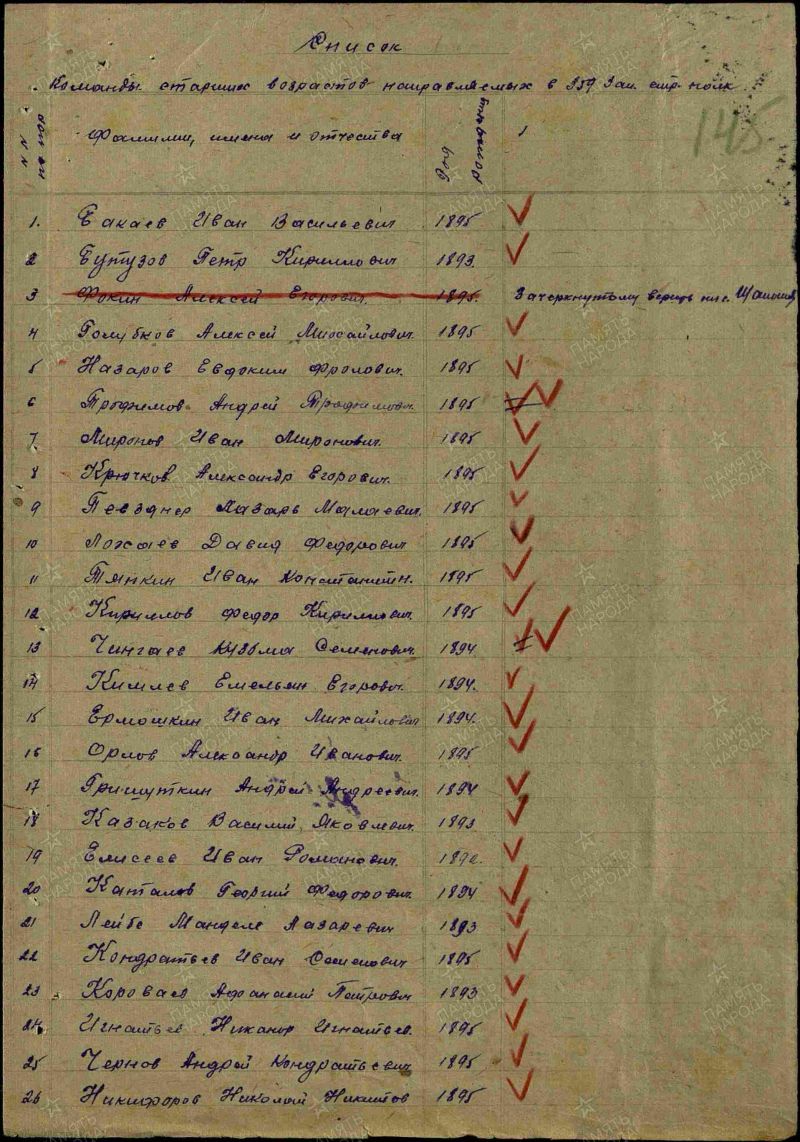 Список
Команды старших возрастов направляемых в 359 Зап. стр. полк
145
NN по пор
Фамилии, имена и отчества
Год рождения
1. Бакаев Иван Васильевич 1895
2 Бутузов Петр Кириллович 1893.
3 Фокин Алексей Егорович. 1895. Зачеркнутому верить
4 Голубков Алексей Михайлович. 1895
5 Назаров Евдоким Фролович. 1895
6 Трофимов Андрей Трофимович. 1895
7 Миронов Иван Миронович. 1895
8 Крючков Александр Егорович. 1895
9 Певзнер Лазарь Малаевич. 1895
10 Лохаев Давид Федорович 1895
11 Тянкин Иван Константин. 1895
12 Кириллов Федор Кириллович. 1895
13 Чингаев Кузьма Семенович. 1894.
14 Кимлев Емельян Егорович. 1894.
15 Ермошкин Иван Михайлович 1894.
16 Орлов Александр Иванович. 1895
17 Гришуткин Андрей Андреевич. 1894
18 Казаков Василий Яковлевич. 1893
19 Елисеев Иван Романович.
20 Каталов Георгий Федорович. 1894
21 Лейбе Мандель Лазаревич 1893
22 Кондратьев Иван Семенович 1895
23 Короваев Афанасий Петрович 1893
24 Игнатьев Никанор Игнатьев. 1895
25 Чернов Андрей Кондратьевич 1895
26 Никифоров Николай Никитов 1895
ПАМЯТЬ НАРОДА